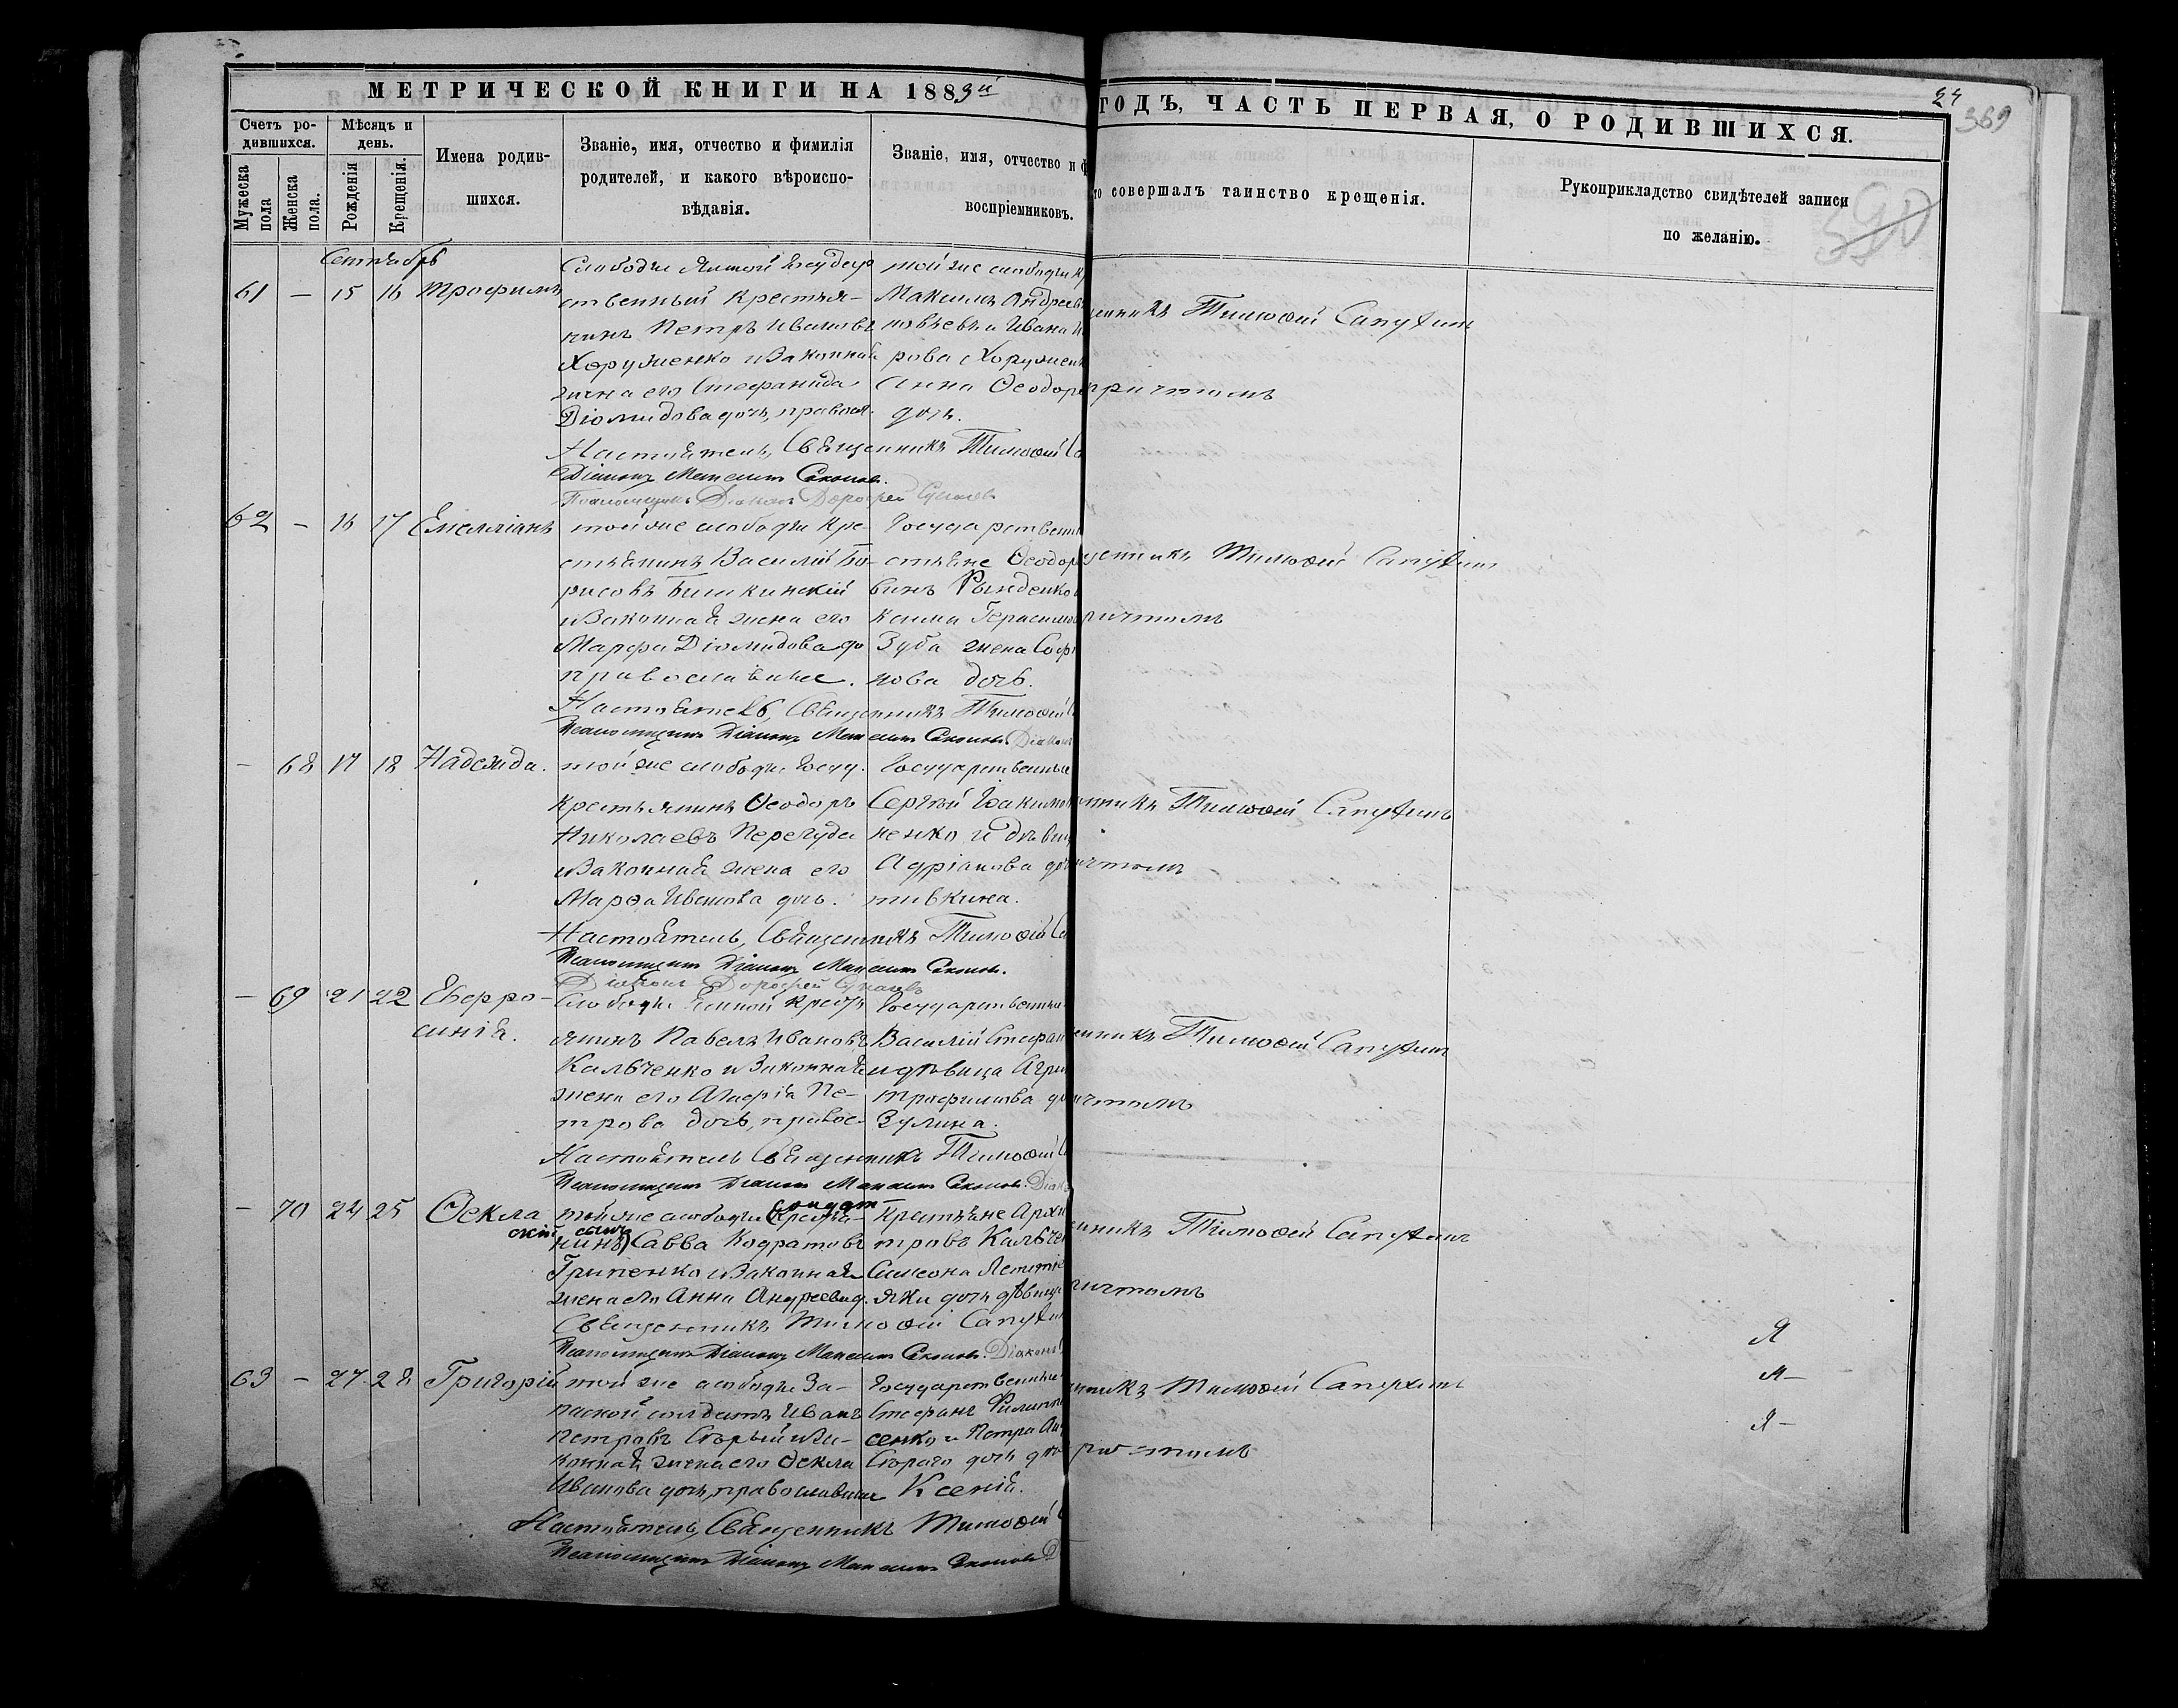 МЕТРИЧЕСКОЙ КНИГИ НА 1883й
ГОДЪ, ЧАСТЬ ПЕРВАЯ, О РОДИВШИХСЯ.
24
369
Счетъ ро-
дившихся.
Мѣсяцъ и
день.
Мужеска
пола
Женска
пола.
Рожденія
Крещенія.
Имена родив-
шихся.
Званіе, имя, отчество и фимилія
родителей, и какого вѣроиспо-
вѣданія.
Званіе, имя, отчество и ф
воспріемниковъ.
то совершалъ таинство крещенія.
Рукоприкладство свидѣтелей записи
по желанію.
Сентябрь
61 — 15 16 Трофимъ
Слободы Ямной Государ
ственный крестья-
нинъ Петръ Ивановъ
Хоруженко и законная
жена его Стефанида
Діомидова дочь, правосл.
той же слободы к
Максимъ Андреев
новьевъ и Ивана
рова Хоружен
Анна Ѳеодор
дочь.
щенникъ Тимоѳей Сапухин
причтомъ
Настоятель, Священникъ Тимоѳей Са
Діаконъ
62 — 16 17 Емелліанъ
той же слободы кре-
стьянинъ Василій Бо-
рисовъ Бишкинскій
и законная жена его
Марфа Діомидова до
православные.
Государственн
стьяне Ѳеодор
винъ Рынденко
ксима Герасимо
Зуба жена Соф
нова дочь.
щенникъ Тимоѳей Сапухин
ричтомъ
Настоятель, Священникъ Тимоѳей
Псаломщикъ Діаконъ
— 68 17 18 Надежда.
той же слободы Госуд.
крестьянинъ Ѳеодоръ
Николаевъ Перегуда
и законная жена его
Марѳа Иванова дочь.
Государственные
Сергѣй Іоакимо
ненко и дѣвиц
Адріанова до
тивкина.
нникъ Тимоѳей Сапухинъ
ичтомъ
Настоятель, Священникъ Тимоѳей Са
Псаломщикъ Діаконъ
— 69 21 22 Евфро-
синія.
Слободы Ямной крест
янинъ Павелъ Ивановъ
Кальченко и законная
жена его Агафія Пе-
трова дочь, правос.
Государственны
Василій Стефан
и дѣвица Агри
Трофимова до
Зулина.
енникъ Тимоѳей Сапухин
ичтомъ
Настоятель Священникъ Тимоѳей
Псаломщикъ Діаконъ
— 70 24 25 Ѳекла
той же слободы
солдат
ский сынъ
нинъ) Савва Кодратовъ
Грипенко и законная
жена его Анна Андреева д.
крестьяне Архи
тровъ Кальче
Симеона
дочь дѣвица
нникъ Тимоѳей Сапухинъ
ичтомъ
Священникъ Тимоѳей Сапухин
Псаломщикъ Діаконъ
63 — 27 28 Григорій
той же слободы За-
пасной солдатъ Иванъ
Петровъ Сѣрый и за-
конная жена его Ѳекла
Иванова дочь, православные
Государственные
Стефанъ Филипп
сенко и Петра
Сѣраго дочь
Ксенія.
нникъ Тимоѳей Сапухин
Настоятель, Священникъ Тимоѳей
Псаломщикъ Діаконъ
Я
Я—
Я—